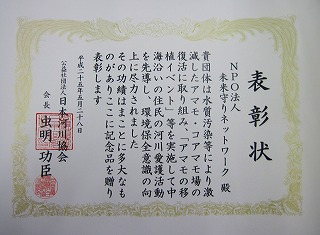 表彰状
NPO法人
未来守りネットワーク 殿
貴団体は水質汚染等により激
減したアマモ、コアマモ場の
復活に取り組み、「アマモの移
植イベント」等を実施して中
海沿いの住民の河川愛護活動
を先導し、環境保全意識の向
上に尽力されました
その功績はまことに多大なも
のがありここに記念品を贈り
表彰します
平成二十五年五月二十八日
公益社団法人 日本河川協会
会長 虫明功臣